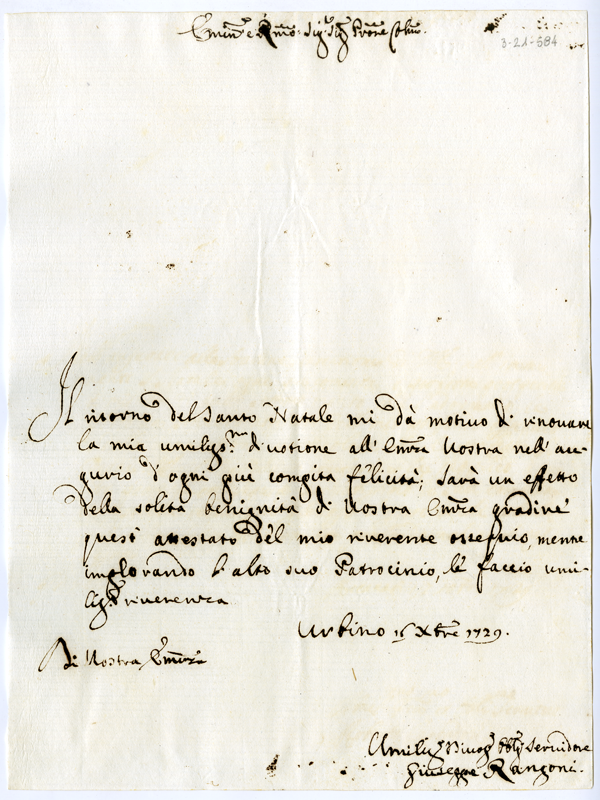 Emin.mo e R.mo Sig.r Sig.r P.rone Col.mo
3-21-684
Il ritorno del Santo Natale mi dà motivo di rinouare
la mia umiliss.ma diuotione all' Em.za Vostra nell' au-
gurio d'ogni più compita felicità; Sarà un effetto
della solita benignità di Vostra Em.za gradire
quest' attestato del mio riverente ossequio, mentre
implorando l'alto suo Patrocinio, le faccio umi-
liss.a riverenza
Urbino 16 Xbre 1729.
Di Vostra Em.za
Umiliss. Diuot. Obl. Seruidore
Giuseppe Rangoni.